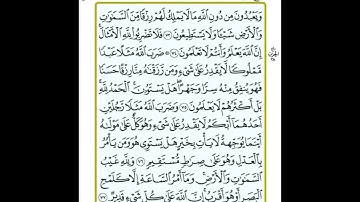 وَيَعْبُدُونَ مِن دُونِ ٱللَّهِ مَا لَا يَمْلِكُ لَهُمْ رِزْقًا مِّنَ ٱلسَّمَٰوَٰتِ
وَٱلْأَرْضِ شَيْـًٔا وَلَا يَسْتَطِيعُونَ ٧٣ فَلَا تَضْرِبُوا۟ لِلَّهِ ٱلْأَمْثَالَ
إِنَّ ٱللَّهَ يَعْلَمُ وَأَنتُمْ لَا تَعْلَمُونَ ٧٤ ۞ ضَرَبَ ٱللَّهُ مَثَلًا عَبْدًا
مَّمْلُوكًا لَّا يَقْدِرُ عَلَىٰ شَىْءٍ وَمَن رَّزَقْنَٰهُ مِنَّا رِزْقًا حَسَنًا
فَهُوَ يُنفِقُ مِنْهُ سِرًّا وَجَهْرًا هَلْ يَسْتَوُۥنَ ٱلْحَمْدُ لِلَّهِ
بَلْ أَكْثَرُهُمْ لَا يَعْلَمُونَ ٧٥ وَضَرَبَ ٱللَّهُ مَثَلًا رَّجُلَيْنِ
أَحَدُهُمَآ أَبْكَمُ لَا يَقْدِرُ عَلَىٰ شَىْءٍ وَهُوَ كَلٌّ عَلَىٰ مَوْلَىٰهُ
أَيْنَمَا يُوَجِّههُّ لَا يَأْتِ بِخَيْرٍ هَلْ يَسْتَوِى هُوَ وَمَن يَأْمُرُ
بِٱلْعَدْلِ وَهُوَ عَلَىٰ صِرَٰطٍ مُّسْتَقِيمٍ ٧٦ وَلِلَّهِ غَيْبُ
ٱلسَّمَٰوَٰتِ وَٱلْأَرْضِ وَمَآ أَمْرُ ٱلسَّاعَةِ إِلَّا كَلَمْحِ
ٱلْبَصَرِ أَوْ هُوَ أَقْرَبُ إِنَّ ٱللَّهَ عَلَىٰ كُلِّ شَىْءٍ قَدِيرٌ ٧٧